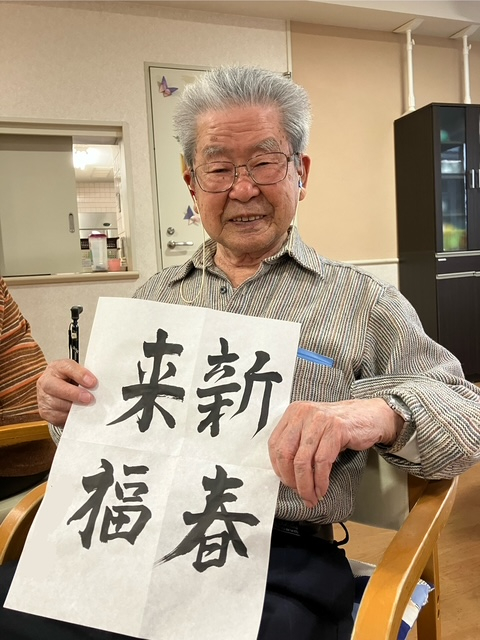 新春
来福